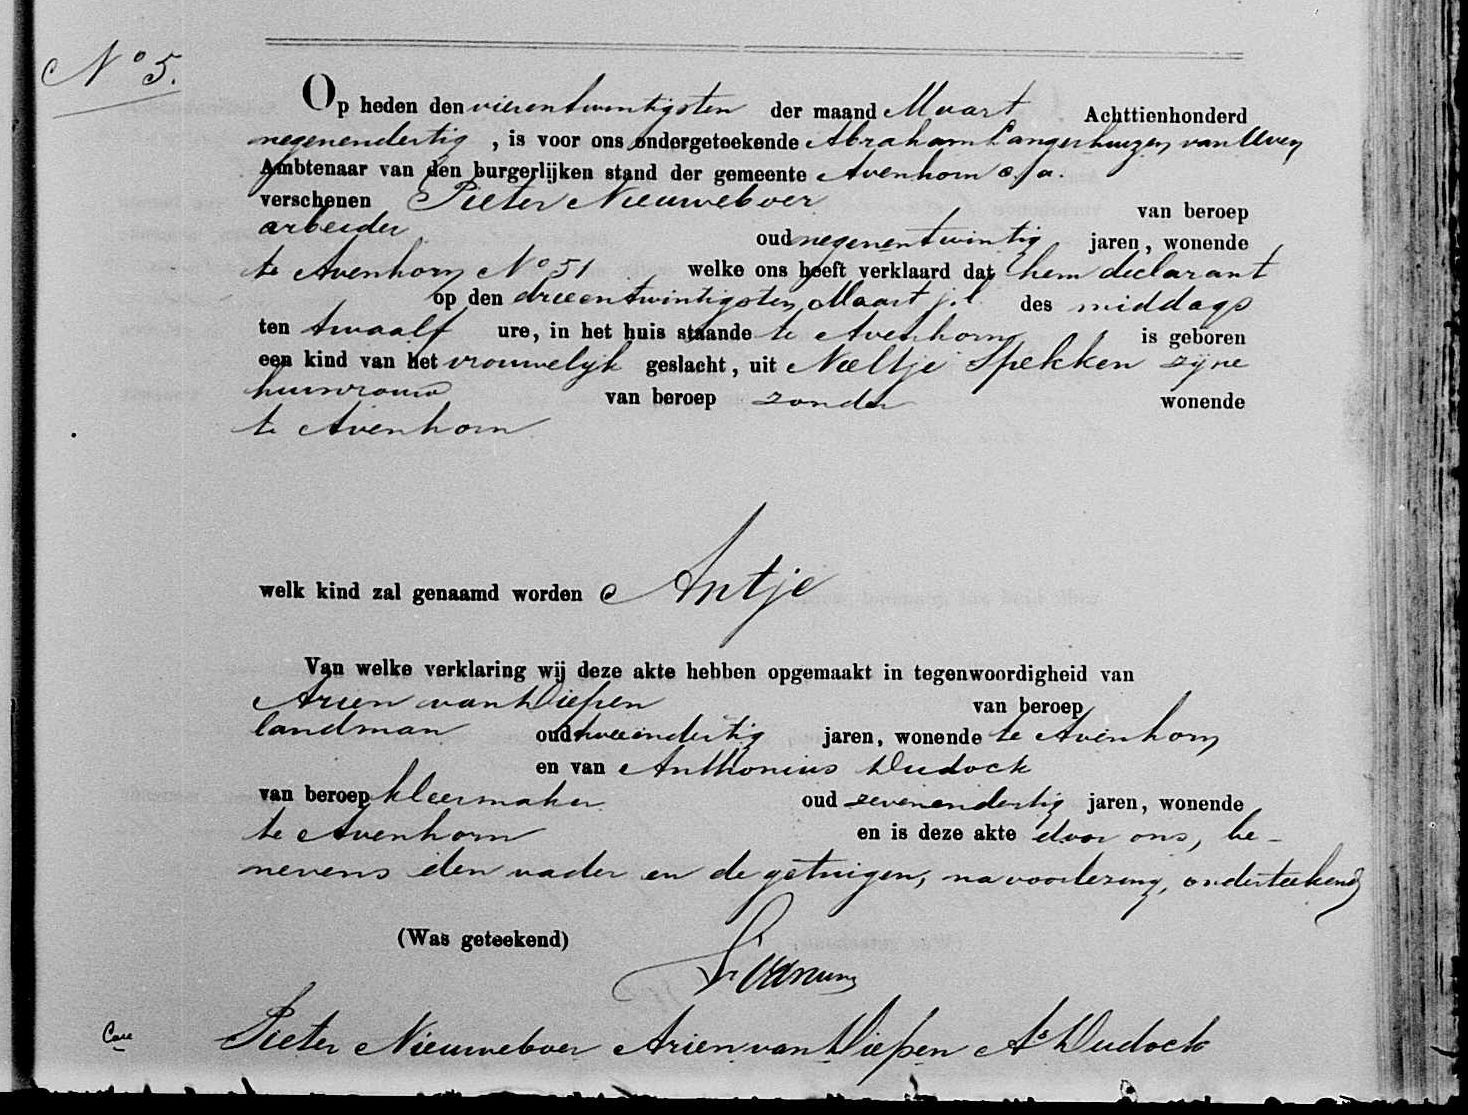 No 5.
Op heden den vierentwintigsten der maand Maart Achttienhonderd
negenendertig, is voor ons ondergeteekende Abraham Langerhuizen van Uven
Ambtenaar van den burgerlijken stand der gemeente Avenhorn c.a.
verschenen Pieter Nieuweboer van beroep
arbeider oud negenentwintig jaren, wonende
te Avenhorn No 51 welke ons heeft verklaard dat hem declarant
op den drieentwintigsten Maart j.l. des middags
ten twaalf ure, in het huis staande te Avenhorn is geboren
een kind van het vrouwelijk geslacht, uit Neeltje Spekken zijne
huisvrouw van beroep zonder wonende
te Avenhorn
welk kind zal genaamd worden Antje
Van welke verklaring wij deze akte hebben opgemaakt in tegenwoordigheid van
Arien van Diepen van beroep
landman oud tweeendertig jaren, wonende te Avenhorn
en van Anthonius Dudock
van beroep kleermaker oud zevenendertig jaren, wonende
te Avenhorn en is deze akte door ons, be-
nevens den vader en de getuigen, na voorlezing, onderteekend
(Was geteekend)
Pieter Nieuweboer Arien van Diepen As Dudock